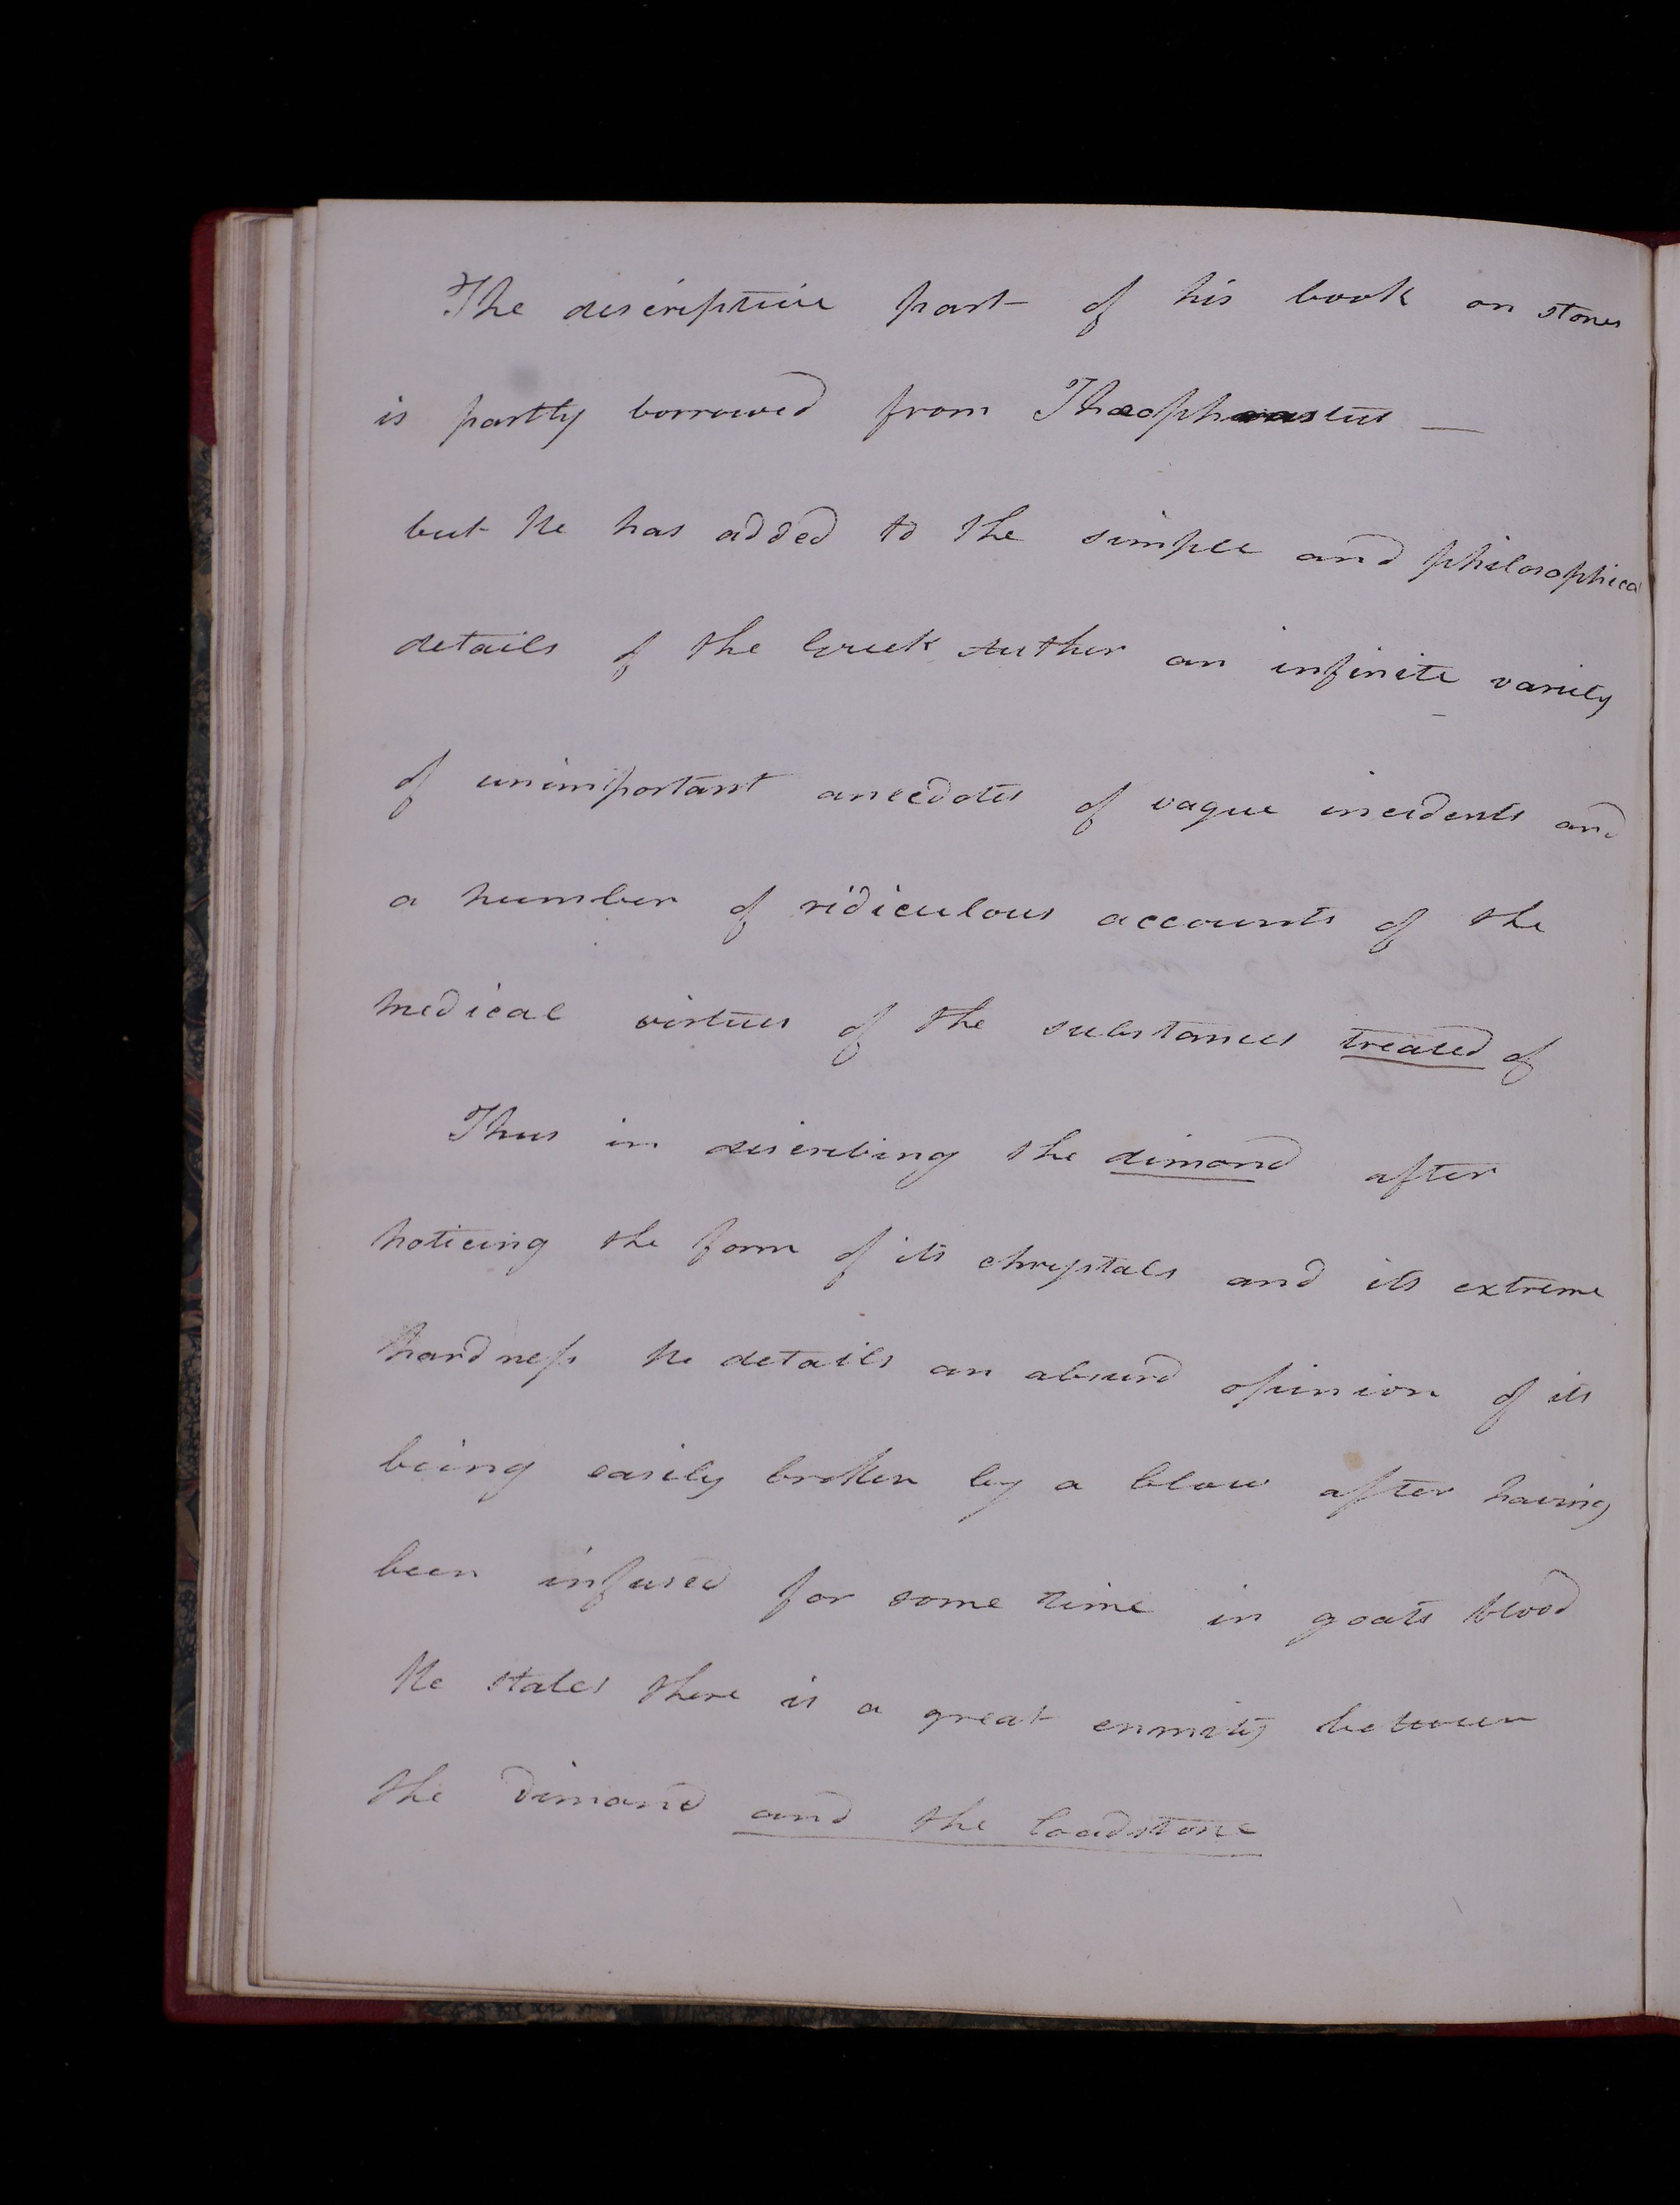 The descriptive part of his book on stones
is partly borrowed from Theophrastus —
but he has added to the simple and philosophical
details of the Greek Author an infinite variety
of unimportant anecdotes of vague incidents and
a number of ridiculous accounts of the
medical virtues of the substances treated of
Thus in describing the dimond after
noticing the form of its chrystals and its extreme
hardness he details an absurd opinion of its
being easily broken by a blow after having
been infused for some time in goats blood
He states there is a great enmity between
the Dimond and the loadstone